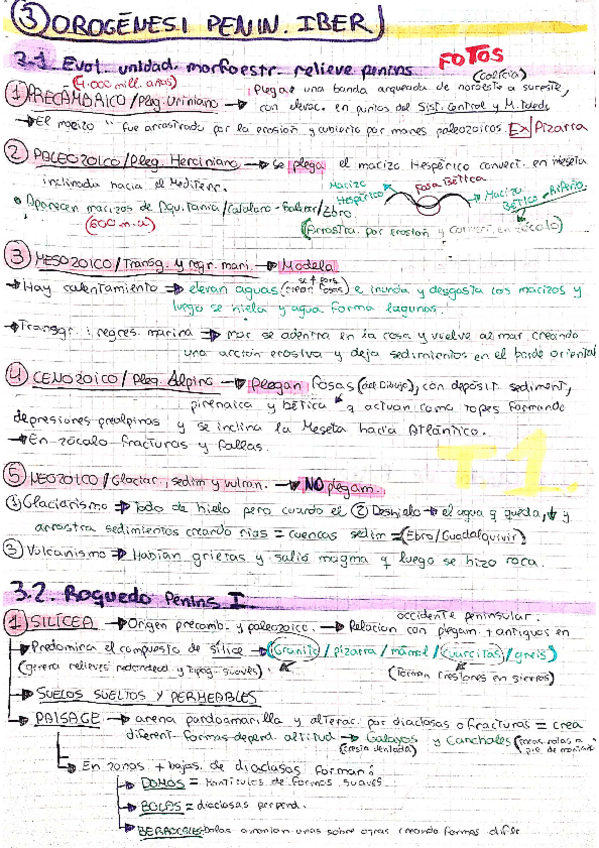 ③ OROGÉNESI PENIN. IBER
3.1 Evol. unidad. morfoestr. relieve penins
FOTOS
(4.000 mill. años)
(Galicia)
① PRECÁMBRICO / Pleg. Uriniano → Plegase una banda arqueada de noroeste a sureste,
con elevac. en puntos del Sist. Central y M. Toledo
→ El macizo fue arrastrado por la erosión y cubierto por mares paleozoicos. Ex| Pizarra
② PALEOZOICO / Pleg. Herciniano → Se plega el macizo Hespérico convert. en meseta
inclinada hacia el Mediterr.
Macizo Hespérico
Fosa Bética
Macizo Bético
• Aparecen macizos de Aquitania / Catalano-Balear / Ebro
(600 m.a)
(Arrastra. por erosión y convert. en zócalo)
③ MESOZOICO / Transg. y regr. mari. → Modela
→ Hay calentamiento ⇒ elevan aguas (crean fosas) e inunda y desgasta los macizos y
luego se hiela y agua forma lagunas.
→ Transgr. i regres. marina ⇒ mar se adentra en la cosa y vuelve al mar creando
una acción erosiva y deja sedimientos en el borde oriental
④ CENOZOICO / Pleg. Alpino → Plegan fosas (del Dibujo), con depósit. sediment,
pirenaica y bética q actuan como topes formando
depresiones prealpinas y se inclina la Meseta hacia Atlántico.
→ En zócalo fracturas y fallas.
T.1.
⑤ NEOZOICO / Glaciar., sedim y vulcan. → NO plegam.
① Glaciarismo ⇒ Todo de hielo pero cuando el ② Deshielo → el agua q queda, y
arrastra sedimientos creando rias = cuencas sedim = (Ebro/Guadalquivir)
③ Vulcanismo ⇒ Habian grietas y salió magma q luego se hizo roca.
3.2. Roquedo Penins I
1. SILÍCEA → Origen precamb. y paleozoico. → Relacion con plegam. + antiguos en
occidente peninsular.
→ Predomina el compuesto de sílice → (Granito / pizarra / mármol / cuarcitas / gneis)
(genera relieves redondead y topog. suaves).
(forman crestones en sierras)
→ SUELOS SUELTOS Y PERMEABLES
→ PAISAGE → arena pardoamarilla y alterac. por diaclasas o fracturas = crea
diferent formas depend. altitud → Galayos y Canchales
(cresta dentada)
→ En zonas + bajas. de diaclasas forman:
→ DOMOS = montículos de formas suaves
→ BOLAS = diaclasas perpend.
→ BERROCALES = bolas amontonan unas sobre otras creando formas difse